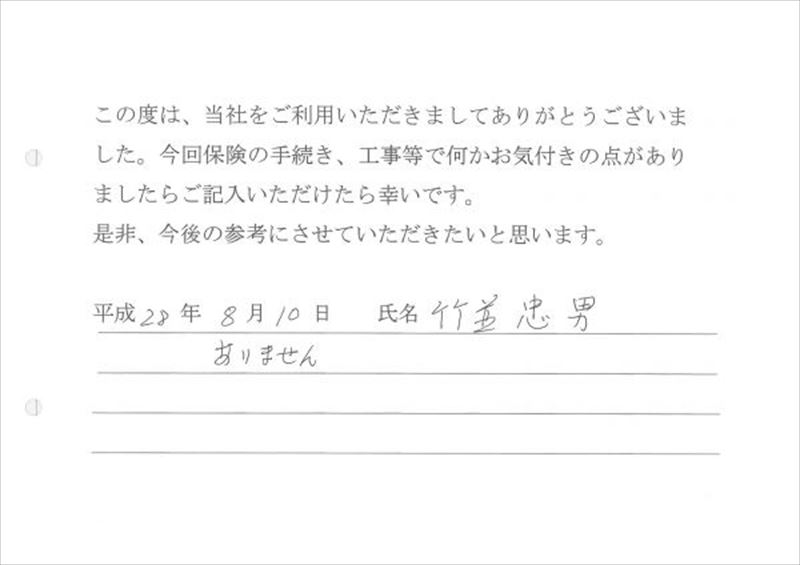 この度は、当社をご利用いただきましてありがとうございま
した。今回保険の手続き、工事等で何かお気付きの点があり
ましたらご記入いただけたら幸いです。
是非、今後の参考にさせていただきたいと思います。
平成28年 8月10日 氏名 竹並忠男
ありません